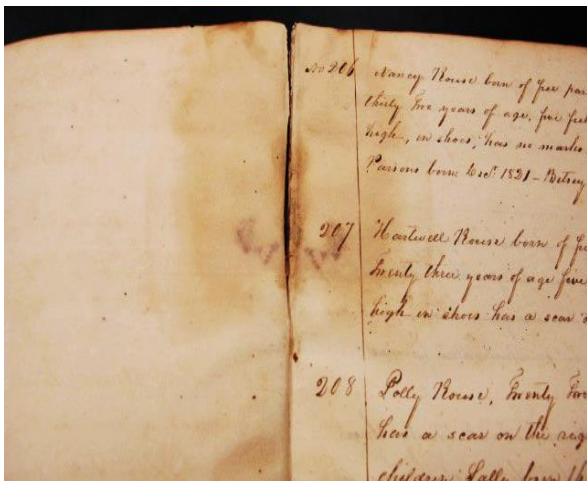 No 206 Nancy Rouse born of free par
thirty five years of age, five feet
high, in shoes, has no marks
Parsons born Decr. 1821 - Betsey
207 Hartwell Rouse born of fre
Twenty three years of age five
high in shoes has a scar
208 Polly Rouse, Twenty
has a scar on the rig
children Sally born